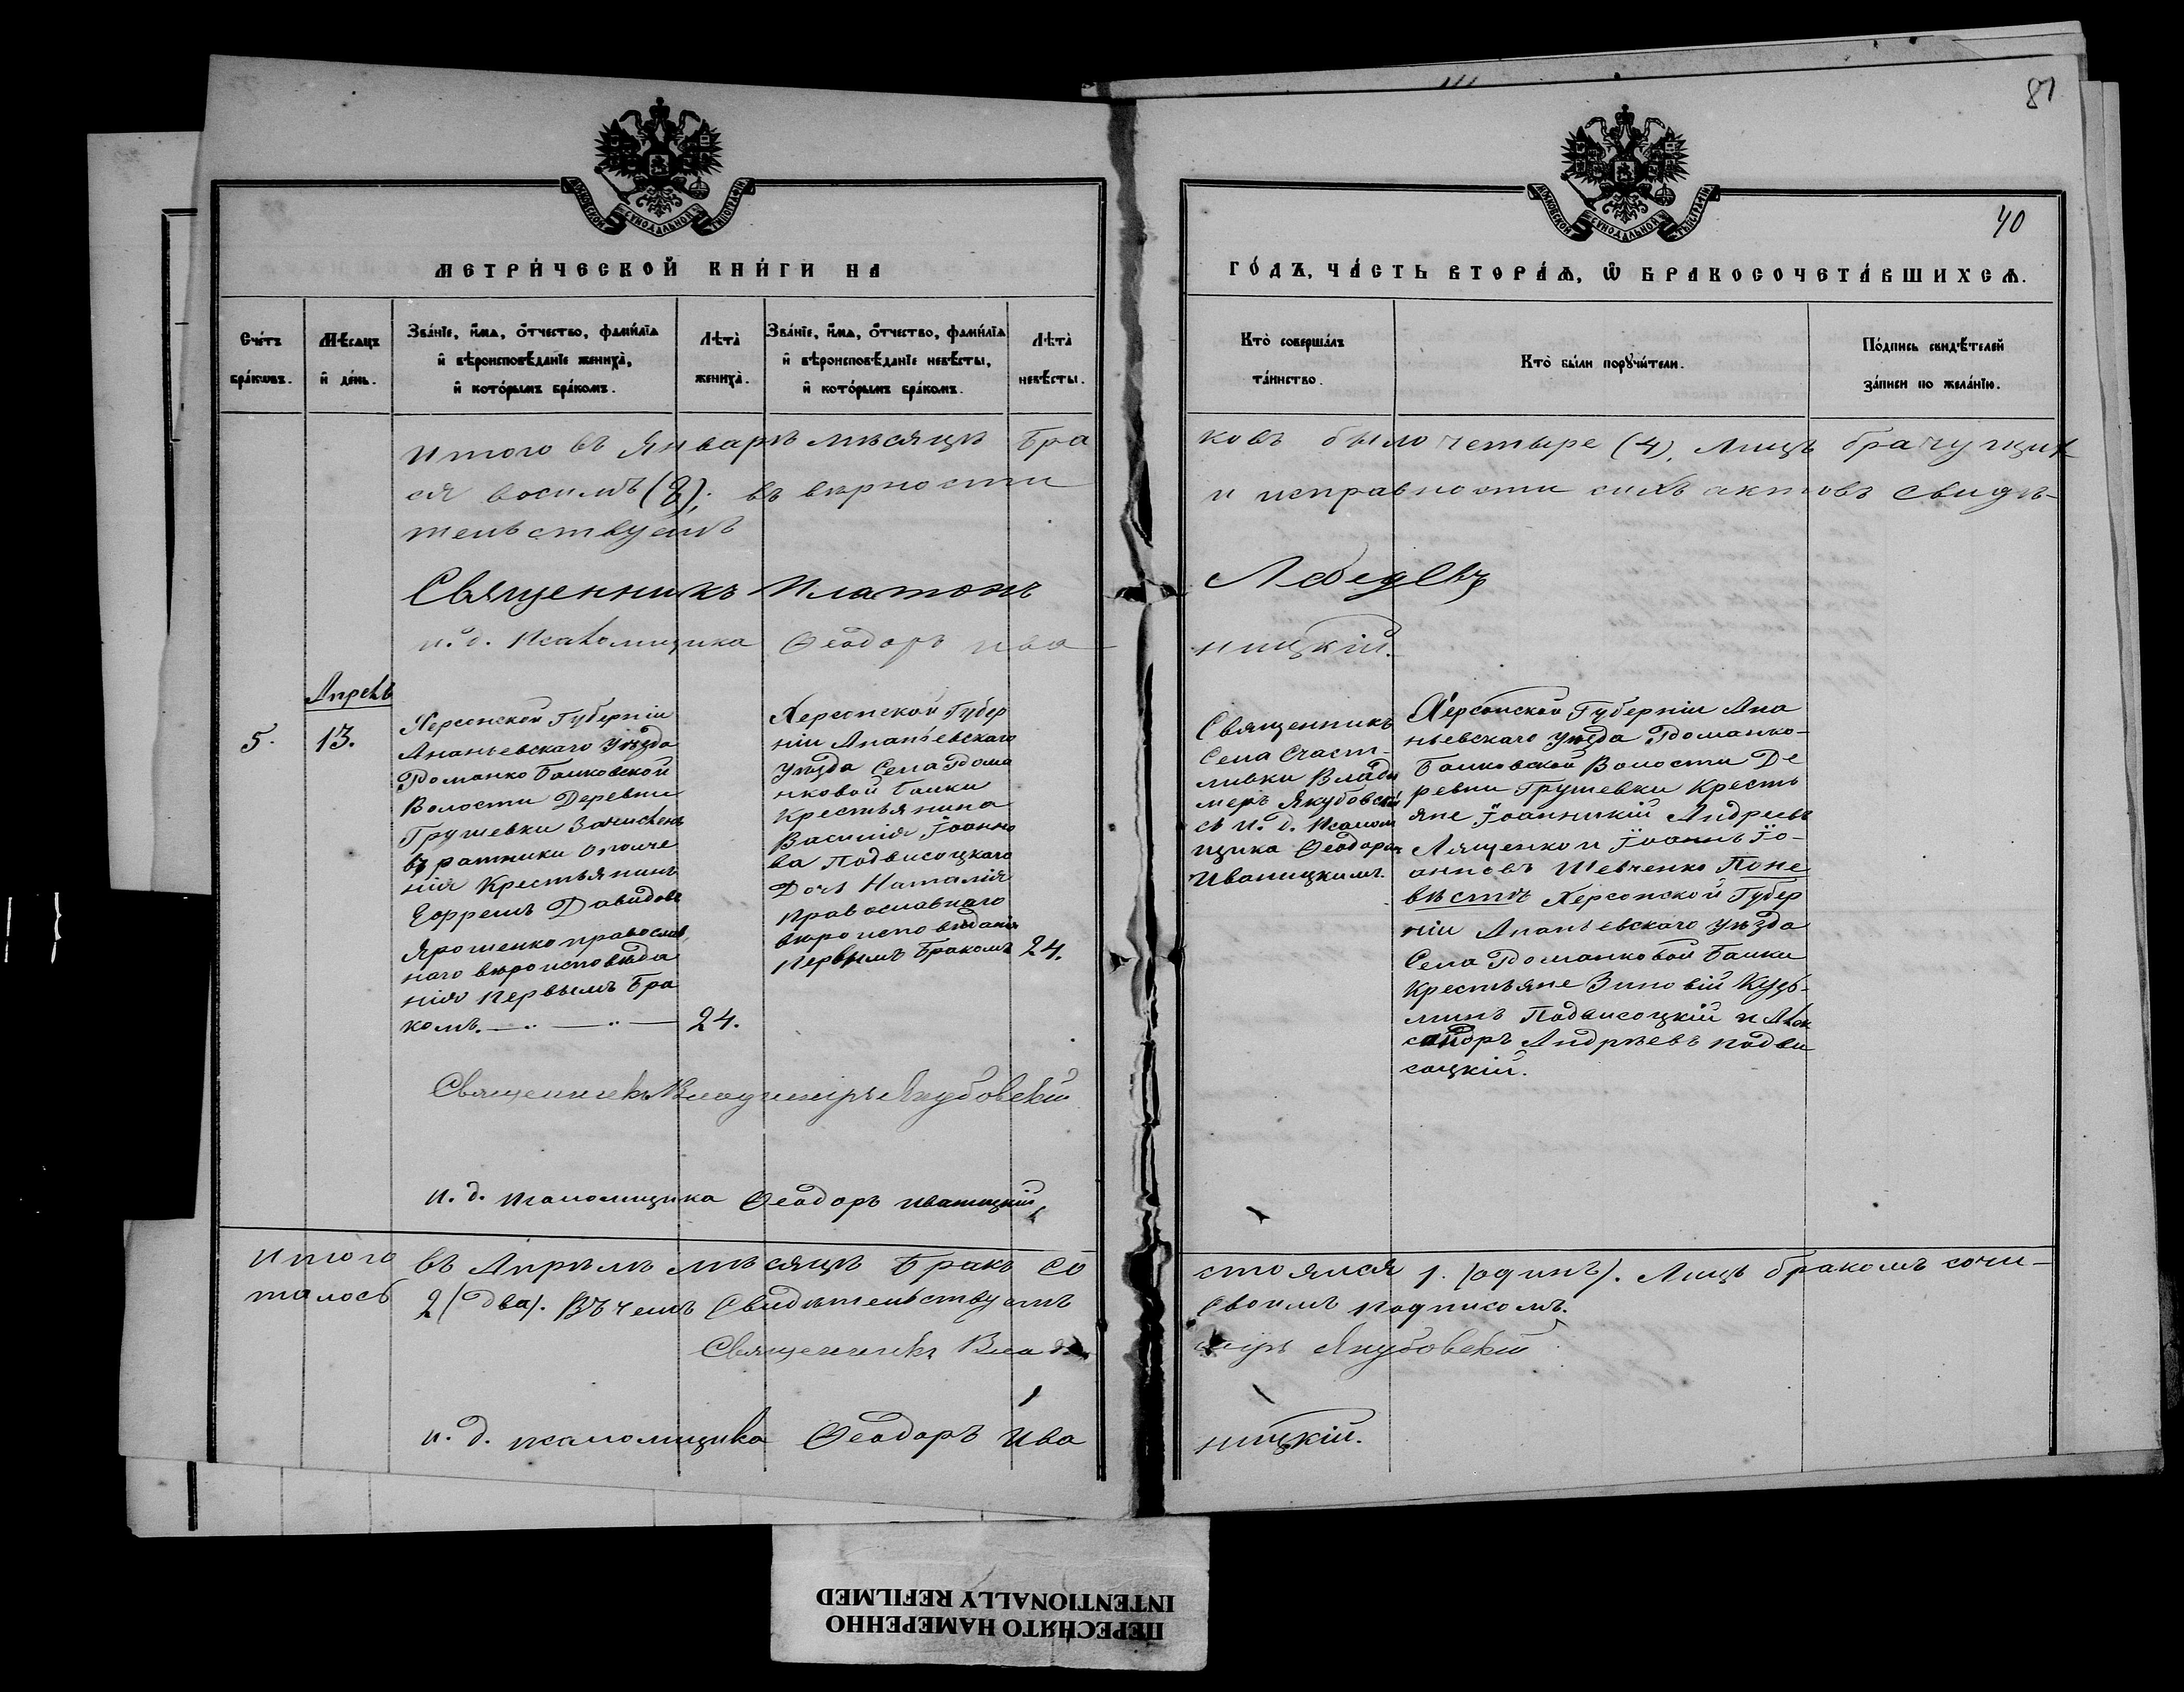 81
МОСКОВСКОЙ СУНОДАЛЬНОЙ ТИПОГРАФІИ
МОСКОВСКОЙ СУНОДАЛЬНОЙ ТИПОГРАФІИ
40
МЕТРИ́ЧЕСКОЙ КНИ́ГИ НА
ГО́ДЪ, ЧА́СТЬ ВТОРА́Ѧ, Ѽ БРАКОСОЧЕТА́ВШИХСѦ.
Сче́тъ бра́кѡвъ.
Мѣ́сяцъ и҆ де́нь.
Зва́нїе, и҆́мѧ, ѻ҆́тчество, фами́лїѧ и҆ вѣроисповѣ́данїе жениха̀, и҆ кото́рымъ бра́комъ.
Лѣта̀ жениха̀.
Зва́нїе, и҆́мѧ, ѻ҆́тчество, фами́лїѧ и҆ вѣроисповѣ́данїе невѣ́сты, и҆ кото́рымъ бра́комъ.
Лѣта̀ невѣ́сты.
Кто̀ соверша́лъ та́инство.
Кто̀ бы́ли порꙋчи́тели.
По́дпись свидѣ́телей за́писи по жела́нїю.
Итого въ Январѣ мѣсяцѣ Бра
ковъ было четыре (4), Лицъ брачущих
ся восимъ (8); въ вѣрности
и исправности сихъ актовъ свидѣ-
тельствуемъ
Священникъ Платонъ
Лебедевъ
и. д. Псаломщика Ѳеодоръ Ива
ницкій.
Апрель
5.
13.
Херсонской Губерніи
Ананьевскаго Уѣзда
Доманко Балковской
Волости Деревни
Грушевки Зачисленъ
въ ратники ополче
нія Крестьянинъ
Ефремъ Давидовъ
Ярошенко православ
наго вѣроисповѣда
нія первымъ Бра
комъ.
24.
Херсонской Губер
ніи Ананьевскаго
Уѣзда Села Дома
нковой Балки
Крестьянина
Василія Іоанно
ва Подвисоцкаго
Дочь Наталія
православнаго
вѣроисповѣданія
первымъ Бракомъ
24.
Священникъ
Села Счаст-
ливки Влади
меръ Якубовскій
съ и. д. Псалом
щика Ѳеодоромъ
Иваницкимъ.
Херсонской Губерніи Ана
ньевскаго Уѣзда Доманко-
Балковской Волости Де
ревни Грушевки Кресть
яне Іоанникій Андреевъ
Лященко и Іоаннъ Іо-
анновъ Шевченко По не
вѣстѣ Херсонской Губер
ніи Ананьевскаго Уѣзда
Села Доманковой Балки
Крестьяне Зиновій Кузь-
минъ Подвисоцкій и Алек
сандръ Андрѣевъ Подви
соцкій.
Священникъ Владиміръ Якубовскій
и. д. псаломщика Ѳеодоръ Иваницкій
Итого въ Апрѣлѣ мѣсяцѣ Бракъ со
стоялся 1. (одинъ). Лицъ бракомъ сочи-
талось 2 (два). Въ чемъ Свидѣтельствуемъ
своимъ подписомъ.
Священникъ Влади
міръ Якубовскій
и. д. псаломщика Ѳеодоръ Ива
ницкій.
ПЕРЕСНЯТО НАМЕРЕННО
INTENTIONALLY REFILMED